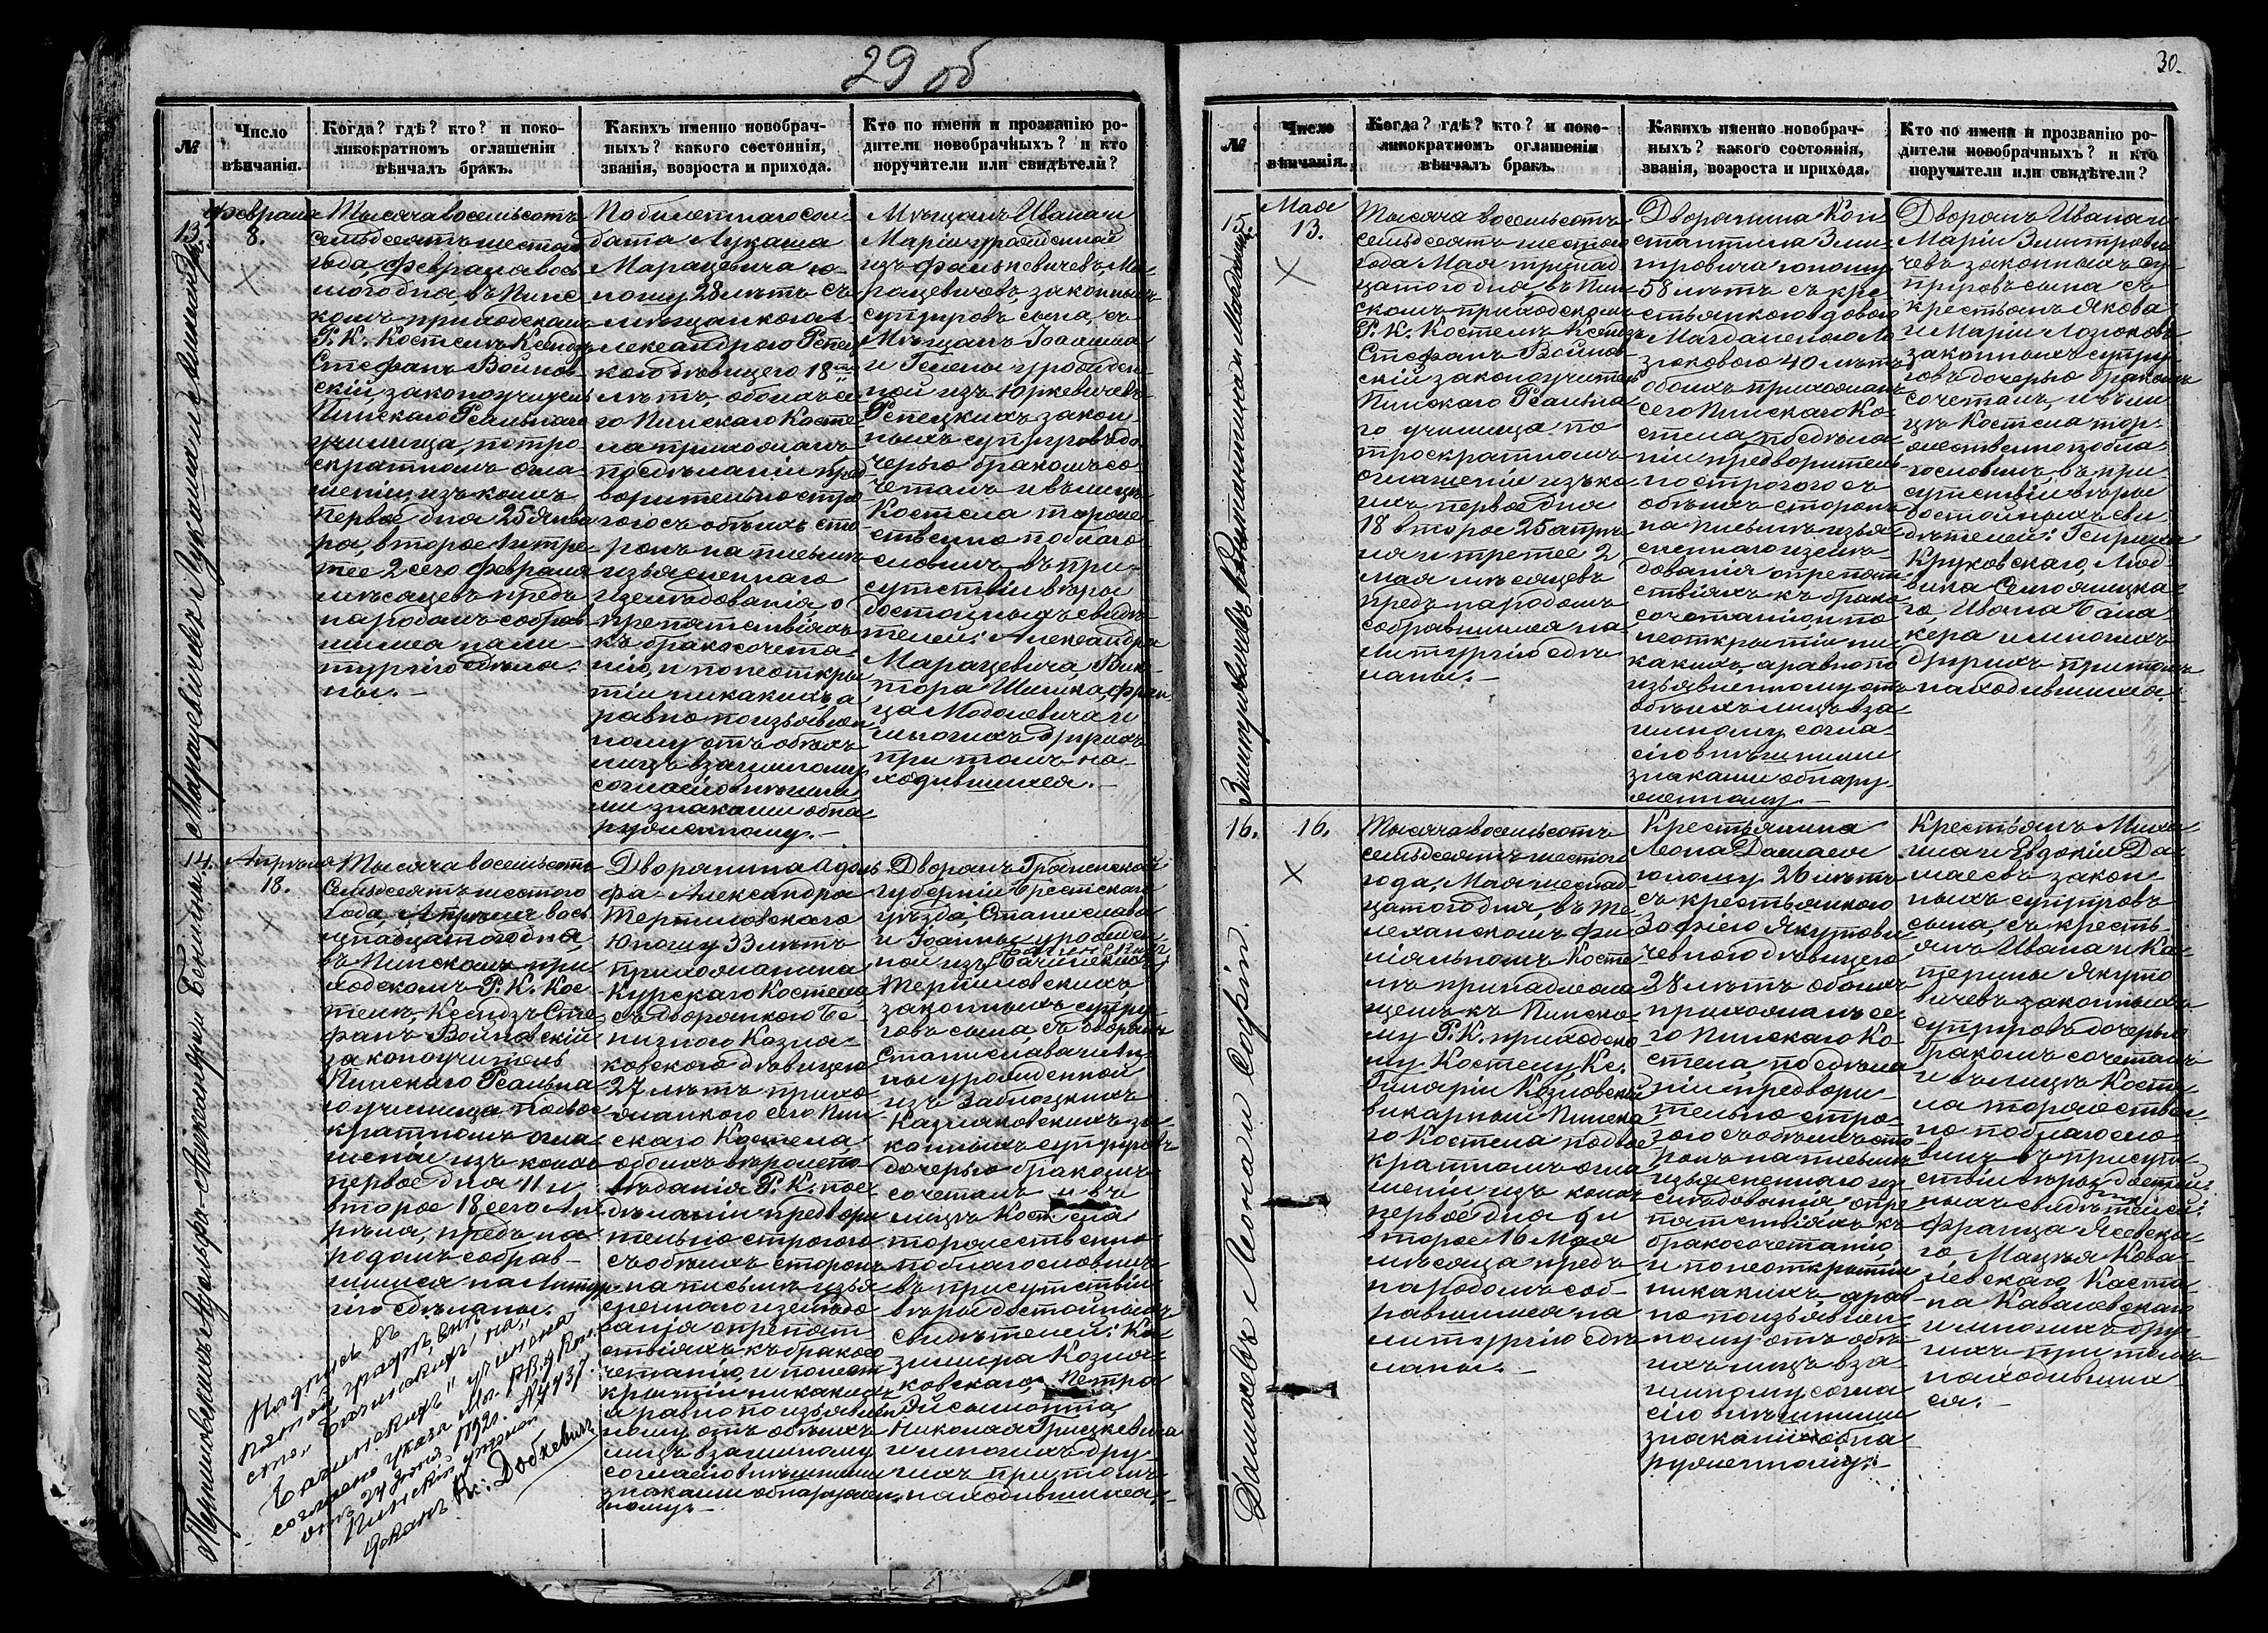 29 об
№
Число
вѣнчанія.
Когда? гдѣ? кто? и поко-
ликократномъ оглашеніи
вѣнчалъ бракъ.
Какихъ именно новобрач-
ныхъ? какого состоянія,
званія, возроста и прихода.
Кто по имени и прозванію ро-
дители новобрачныхъ? и кто
поручители или свидѣтели?
13.
Февраля
8.
Тысяча восемьсотъ
семьдесятъ шестаго
года, Февраля вось
маго дня, въ Пинс
комъ приходскомъ
Р. К. Костелѣ Ксендзъ
Стефанъ Войнов-
скій, законоучитель
Пинскаго Реальнаго
училища, по тро
екратномъ огла
шеніи, изъ коихъ
первое дня 25 Янва
ря, второе 1 и тре
тее 2 сего Февраля
мѣсяцевъ предъ
народомъ собрав
шимся на ли-
тургію сдѣла-
ны.-
По билетнаго сол
дата Лукаша
Марацевича ю-
ношу 28 лѣтъ съ
мѣщанкою А-
лександрою Репец
кою дѣвицею 18
лѣтъ, обоихъ се
го Пинскаго Косте
ла прихожанъ
по сдѣланіи пред
ворительно стро
гого съ обѣихъ сто
ронъ на письмѣ
изъясненнаго
изслѣдованія о
препятствіяхъ
къ бракосочета
нію, и по неоткры
тіи никакихъ, а
равно по изъявлен
ному отъ обѣихъ
лицъ взаимному
согласію внѣшни
ми знаками обна
руженному.-
Мѣщанъ Ивана и
Маріи урожденной
изъ Фалькевичевъ Ма
рацевичевъ законныхъ
супруговъ сына, съ
Мѣщанъ Іоахима
и Гелены урожден
ной изъ Юркевичевъ
Репецкихъ закон
ныхъ супруговъ до
черью бракомъ со
четалъ и въ лицѣ
Костела торже-
ственно поблаго
словилъ въ при-
сутствіи вѣры
достойныхъ свидѣ
телей: Александра
Марацевича, Вик
тора Шишка, Фран
ца Модолевича и
многихъ другихъ
при томъ на-
ходившихся.-
Марацевичевъ Лукаша и Александры
14.
Апрѣля
18.
Тысяча восемьсотъ
семьдесятъ шестого
года, Апрѣля вось
мнадцатого дня,
въ Пинскомъ при-
ходскомъ Р. К. Кос
телѣ, Ксендзъ Сте
фанъ Войновскій
законоучитель
Пинскаго Реальна
го училища по дво
кратномъ огла-
шеніи изъ коихъ
первое дня 11 и
второе 18 сего Ап
рѣля, предъ на-
родомъ собрав-
шимся на Литур
гію сдѣланы.
Дворянина Адоль
фа-Александра
Терпиловскаго
Юношу 33 лѣтъ
прихожанина
Курскаго Костела
съ дворянкою Бе
нигною Козла-
ковского дѣвицею
27 лѣтъ прихо
жанкою сего Пин
скаго Костела,
обоихъ вѣроиспо-
вѣданія Р. К. по с
дѣланіи предвори
тельно строгого
съ обѣихъ сторонъ
на письмѣ изъя
сненнаго изслѣдо
ванія о препят-
ствіяхъ къ бракосо
четанію, и по неот
крытіи никакихъ
а равно по изъявлен
ному отъ обѣихъ
лицъ взаимному
согласію внѣшними
знаками обнаружен
ному.-
Дворянъ Гродненской
губерніи Брестскаго
уѣзда, Станислава
и Іоанны урожден
ной изъ
Терпиловскихъ
законныхъ супру
говъ сына, съ дворянъ
Станислава и Ан
ны урожденной
изъ Заблоцкихъ
Козлаковскихъ за-
конныхъ супруговъ
дочерью бракомъ
сочеталъ и въ
лицѣ Костела
торжественно
поблагословилъ
въ присутствіи
вѣры достойныхъ
свидѣтелей: Ка-
зимира Козла-
ковскаго, Петра
Николая Грицкевича
и многихъ дру
гихъ при томъ
находившихся.-
Терпиловскихъ Адольфа-Александра и Бенигны
Надпись въ
пятой графѣ, вмѣ
сто " " на "
" учинена
согласно указа
отъ 24 Іюля 1892 г. № 4737.
Пинскій
Деканъ Кс: Добкевичъ
30.
№
Число
вѣнчанія.
Когда? гдѣ? кто? и поко-
ликократномъ оглашеніи
вѣнчалъ бракъ.
Какихъ именно новобрач-
ныхъ? какого состоянія,
званія, возроста и прихода.
Кто по имени и прозванію ро-
дители новобрачныхъ? и кто
поручители или свидѣтели?
15.
Мая
13.
Тысяча восемьсотъ
семьдесятъ шестого
года Мая тринад
цатого дня, въ Пин
скомъ приходскомъ
Р. К. Костелѣ Ксендзъ
Стефанъ Войнов
скій законоучитель
Пинскаго Реальна
го училища по
троекратномъ
оглашеніи изъ ко
ихъ первое дня
18 второе 25 апрѣ
ля и третее 2
мая мѣсяцевъ
предъ народомъ
собравшимся на
литургію сдѣ
ланы.-
Дворянина Кон
стантина Зми-
тровича юношу
58 лѣтъ съ кре
стьянкою вдовою
Магдаленою Ло
зюковою 40 лѣтъ
обоихъ прихожанъ
сего Пинскаго Ко-
стела, по сдѣла
ніи предворитель
но строгого съ
обѣихъ сторонъ
на письмѣ изъя
сненнаго изслѣ
дованія о препят
ствіяхъ къ брако
сочетанію, и по
неоткрытіи ни
какихъ, а равно по
изъявленному отъ
обѣихъ лицъ вза
имному согла-
сію внѣшними
знаками обнару-
женному.-
Дворянъ Ивана и
Маріи Змитрови
чевъ законныхъ су
пруговъ сына съ
крестьянъ Якова
и Маріи Лозюковъ
законныхъ супру
говъ дочерью бракомъ
сочеталъ, и въ ли
цѣ Костела тор-
жественно побла-
гословилъ, въ при
сутствіи вѣры
достойныхъ сви
дѣтелей: Генриха
Круковскаго, Люд
вика
го, Ивана
кера и многихъ
другихъ при томъ
находившихся.
Змитровичевъ Константина и Магдалены
16.
16.
Тысяча восемьсотъ
семьдесятъ шестого
года, Мая шестнад
цатого дня, въ Те
леханскомъ фи-
ліяльномъ Косте
лѣ принадлежа
щемъ къ Пинско
му Р. К. приходско
му Костелу, Кс.
Гиларій Козловскій
викарный Пинска
го Костела по дво
кратномъ огла
шеніи изъ коихъ
первое дня 9 и
второе 16 Мая
мѣсяца предъ
народомъ соб-
равшимся на
литургію сдѣ
ланы.-
Крестьянина
Леона Дамаса
юношу 26 лѣтъ
съ крестьянкою
Зофіею Якутови
чевною дѣвицею
28 лѣтъ обоихъ
прихожанъ се
го Пинскаго Ко-
стела, по сдѣла
ніи предвори-
тельно стро-
гого съ обѣихъ сто
ронъ на письмѣ
изъясненнаго из
слѣдованія, о пре
пятствіяхъ къ
бракосочетанію
и по неоткрытіи
никакихъ, а рав
но по изъявлен-
ному отъ обѣ
ихъ лицъ вза-
имному согла
сію внѣшними
знаками обна
руженному.-
Крестьянъ Миха
ила и Евдокіи Да
масовъ закон
ныхъ супруговъ
сына, съ кресть-
янъ Ивана и Ка-
терины Якуто
вичевъ законныхъ
супруговъ дочерью
бракомъ сочеталъ
и въ лицѣ Косте
ла торжествен
но поблагосло-
вилъ въ присут
ствіи вѣры достой
ныхъ свидѣтелей:
Франца
го, Мацѣя Кова
левскаго, Каста
на Ковалевскаго
и многихъ дру
гихъ при томъ
находивших
ся.-
Дамасовъ Леона и Софіи